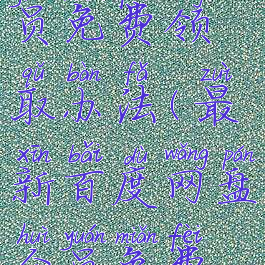 员免费领
qǔ bàn fǎ zuì
取办法(最
xīn bǎi dù wǎng pán
新百度网盘
huì yuán miǎn fèi
会员免费